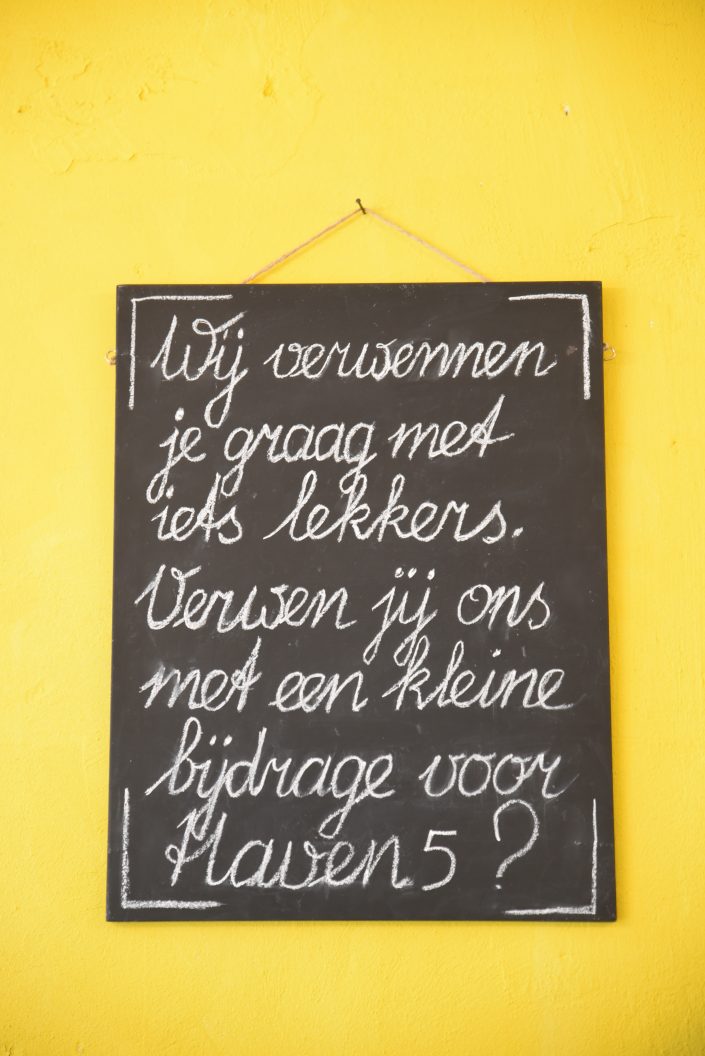 Wij verwennen
je graag met
iets lekkers.
Verwen jij ons
met een kleine
bijdrage voor
Haven 5 ?